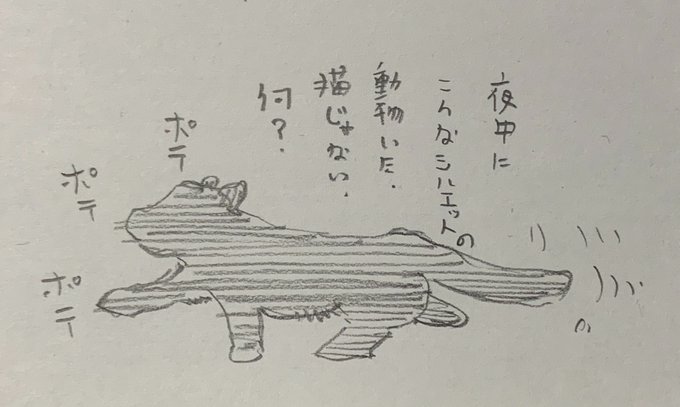 夜中に
こんなシルエットの
動物いた.
猫じゃない.
何?.
ポテ
ポテ
ポテ